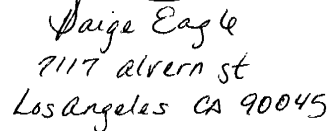 Paige Eagle
7117 alvern st
Los Angeles CA 90045